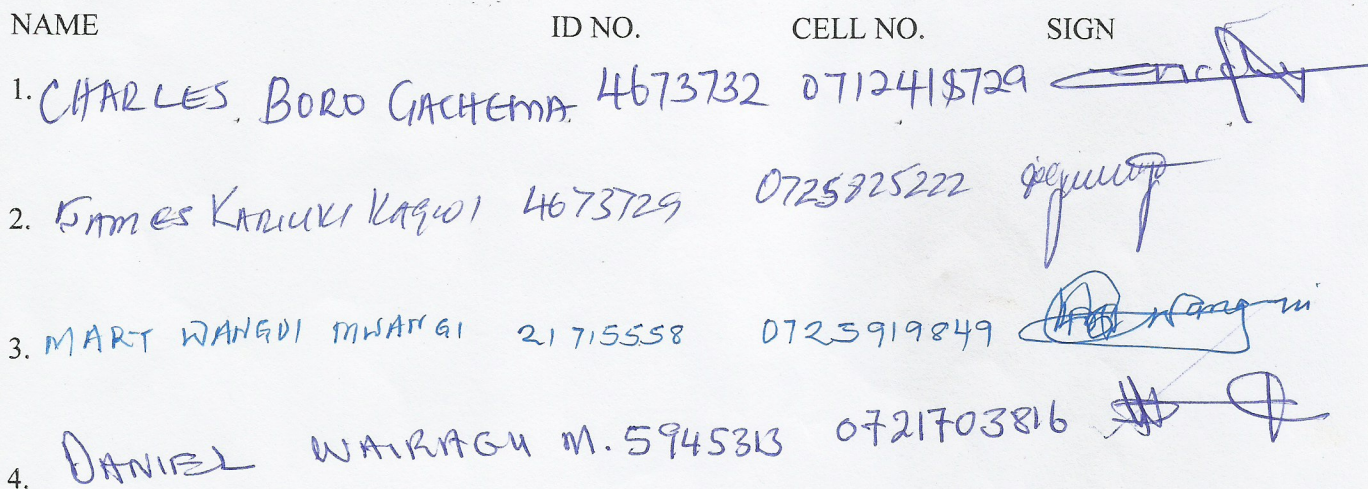 NAME ID NO. CELL NO. SIGN
1. CHARLES BORO GACHEMA 4673732 0712418729
2. JAMES KARIUKI KAGWI 4673729 0725825222
3. MARY WANGUI MWANGI 21715558 0725919849
4. DANIEL WAIRAGU M. 5945313 0721703816